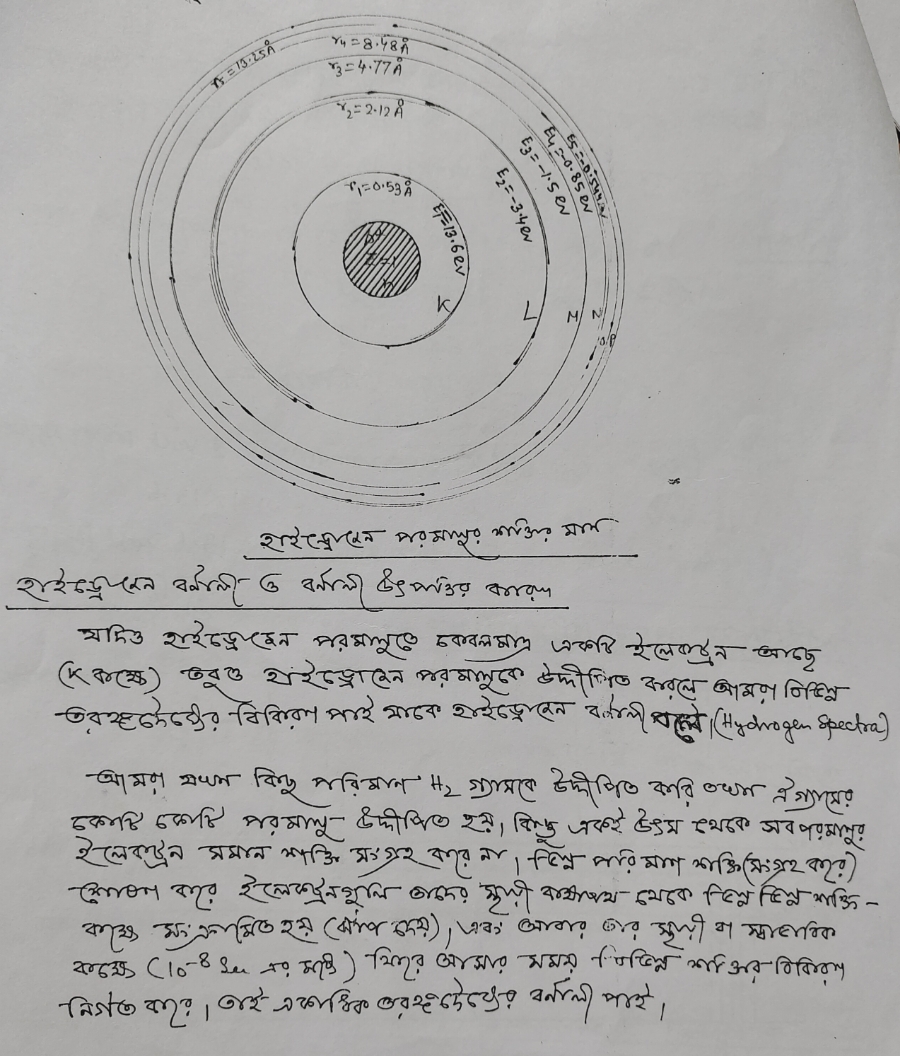 r₅=13.25Å
r₄=8.48Å
r₃=4.77Å
r₂=2.12Å
r₁=0.53Å
E₁=13.6ev
E₂=-3.4ev
E₃=-1.5ev
E₄=-0.85ev
E₅=-0.544ev
Z=1
K
L
M
N
O P
হাইড্রোজেন পরমাণুর শক্তির মান
হাইড্রোজেন বর্নালী ও বর্নালী উৎপত্তির কারণ
যদিও হাইড্রোজেন পরমাণুতে কেবলমাত্র একটি ইলেকট্রন আছে
(K কক্ষে) তবুও হাইড্রোজেন পরমাণুকে উদ্দীপিত করলে আমরা বিভিন্ন
তরঙ্গদৈর্ঘ্যের বিকিরণ পাই যাকে হাইড্রোজেন বর্নালী বলে। (Hydrogen Spectra)
আমরা যখন কিছু পরিমাণ H₂ গ্যাসকে উদ্দীপিত করি তখন ঐ গ্যাসের
কোটি কোটি পরমাণু উদ্দীপিত হয়। কিন্তু একই উৎস থেকে সব পরমাণুর
ইলেকট্রন সমান শক্তি সংগ্রহ করে না। ভিন্ন পরিমাণ শক্তি (সংগ্রহ করে)
শোষণ করে ইলেকট্রনগুলি তাদের স্থায়ী কক্ষপথ থেকে ভিন্ন ভিন্ন শক্তি-
কক্ষে সংক্রামিত হয় (ঝাঁপ দেয়), এবং আবার তার স্থায়ী বা স্বাভাবিক
কক্ষে (10⁻⁸ Sec এর মধ্যে) ফিরে আসার সময় বিভিন্ন শক্তির বিকিরণ
নির্গত করে। তাই একাধিক তরঙ্গদৈর্ঘ্যের বর্নালী পাই।